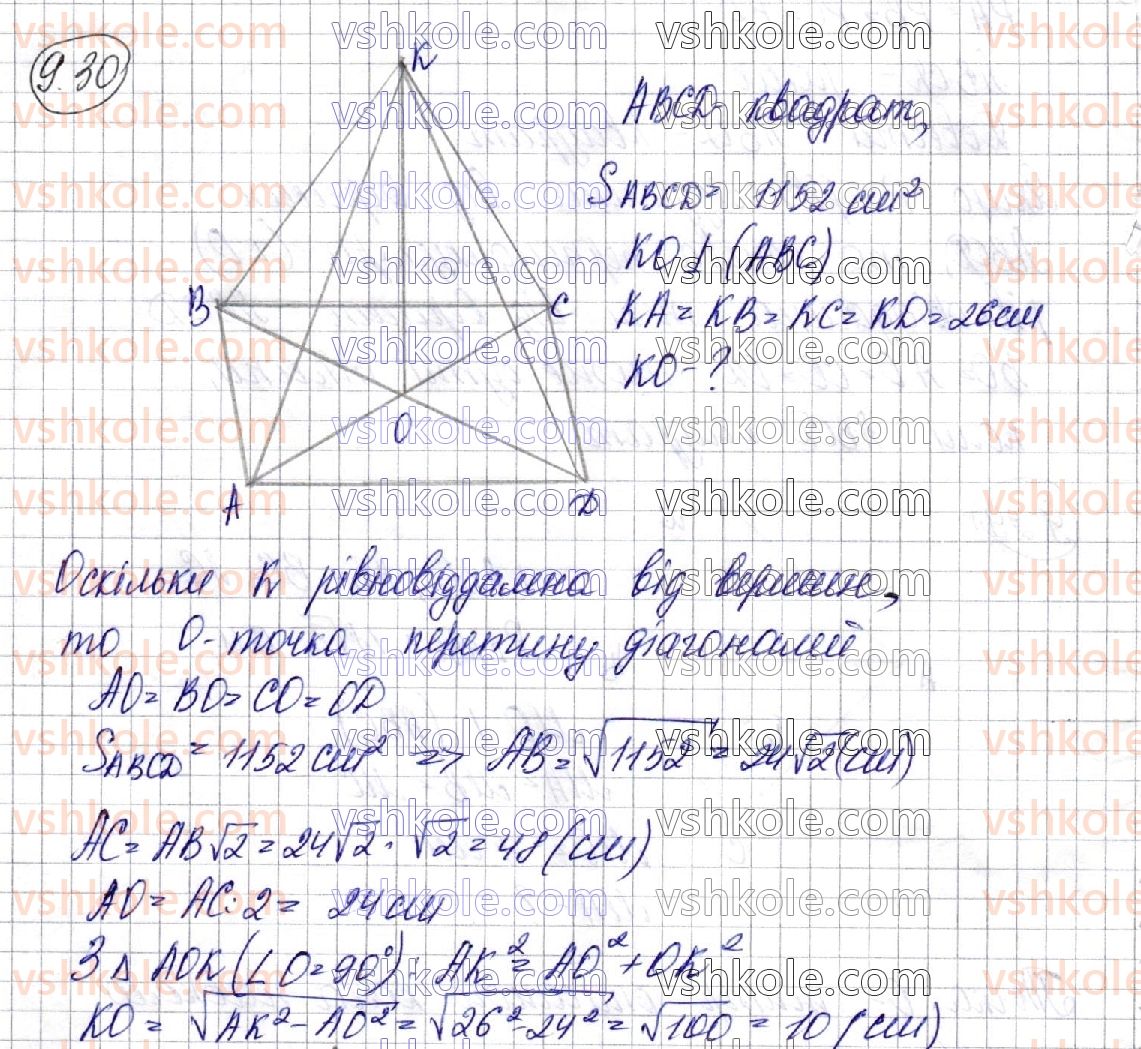 9.30
K
B
C
O
A
D
ABCD - квадрат,
S ABCD = 1152 см²
KO ⊥ (ABC)
KA = KB = KC = KD = 26 см
KO - ?
Оскільки K рівновіддалена від вершин,
то O - точка перетину діагоналей
AO = BO = CO = OD
S ABCD = 1152 см² => AB = √1152 = 24√2 (см)
AC = AB√2 = 24√2 · √2 = 48 (см)
AO = AC : 2 = 24 см
З Δ AOK (∠O = 90°): AK² = AO² + OK²
KO = √AK² - AO² = √26² - 24² = √100 = 10 (см)
vshkole.com